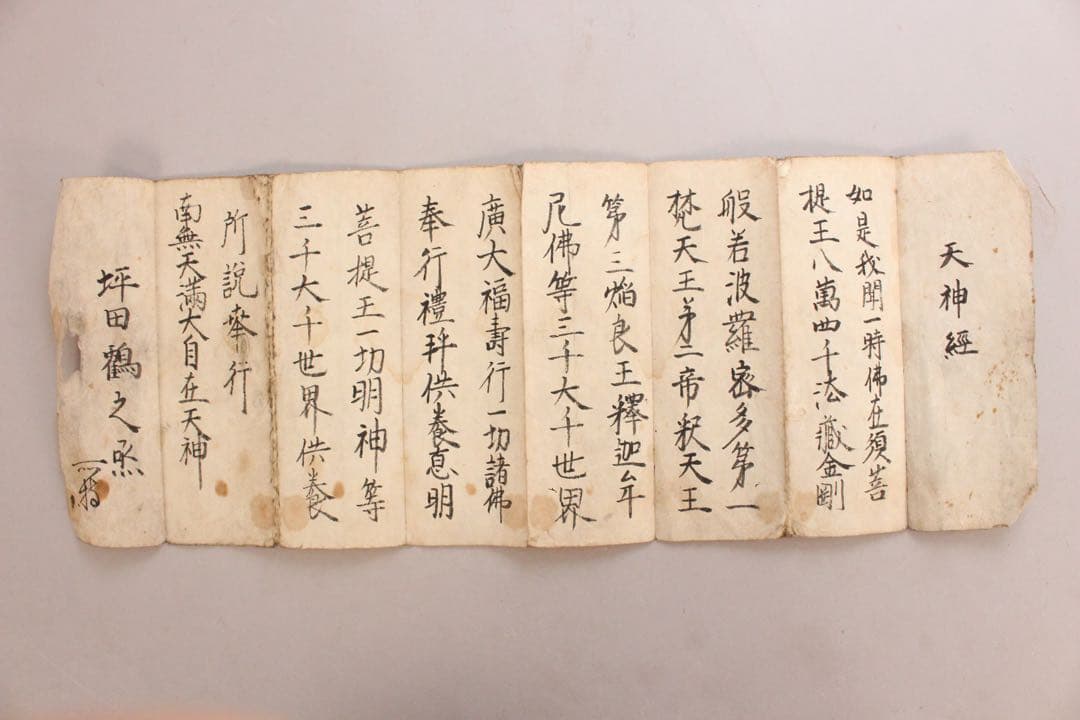 天神經
如是我聞一時佛在須菩
提王八萬四千法藏金剛
般若波羅密多第一
梵天王第二帝釈天王
第三焔良王釋迦牟
尼佛等三千大千世界
廣大福壽行一切諸佛
奉行禮拜供養息明
菩提王一切明神等
三千大千世界供養
所說奉行
南無天滿大自在天神
坪田鶴之丞